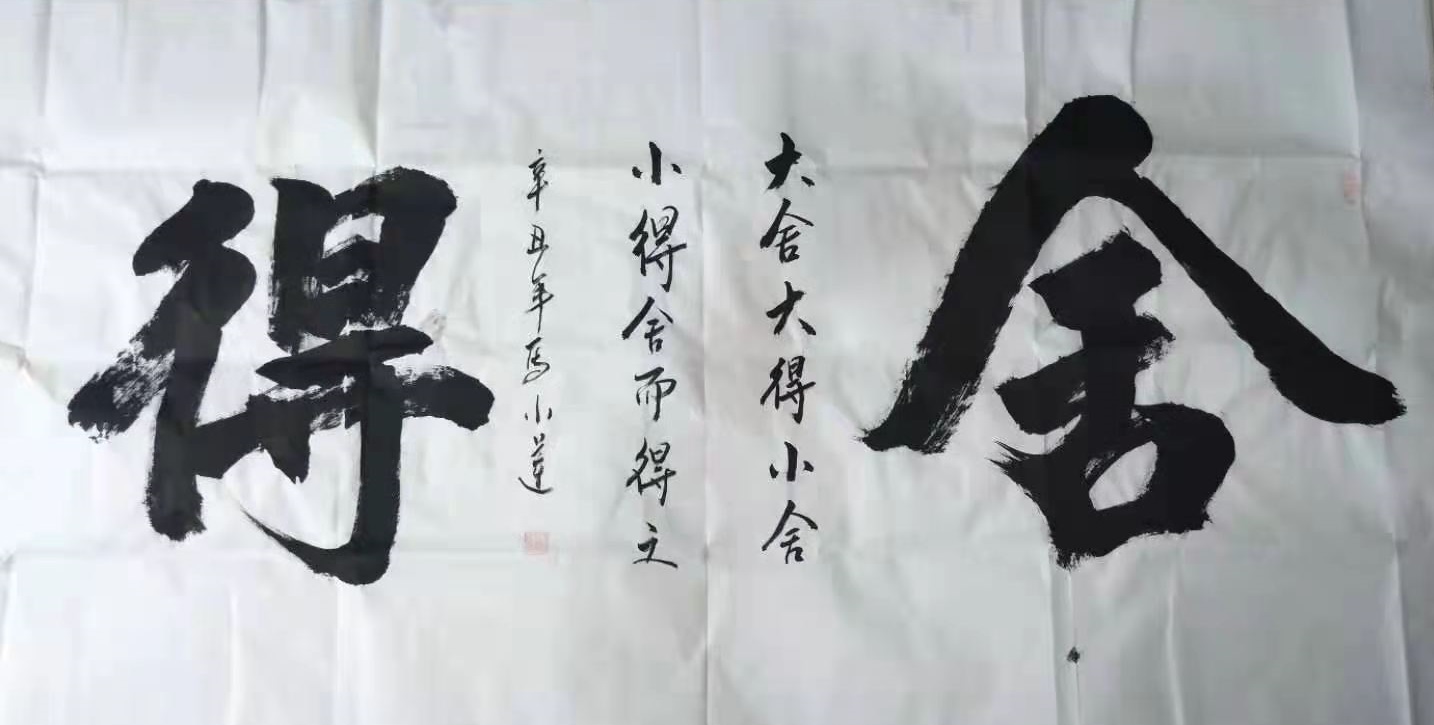 舍
大舍大得小舍
小得舍而得之
辛丑年馬小莲
得